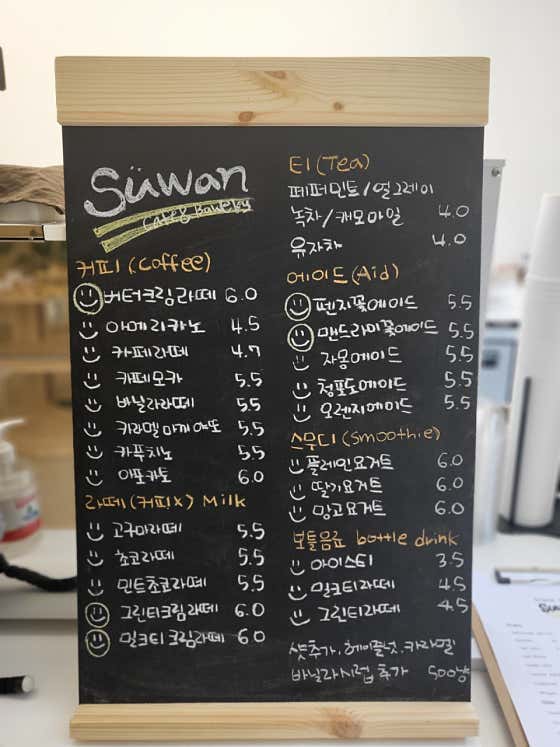 Süwan
Cafe & Bakery
커피 (Coffee)
버터크림라떼 6.0
아메리카노 4.5
카페라떼 4.7
카페모카 5.5
바닐라라떼 5.5
카라멜 마끼아또 5.5
카푸치노 5.5
아포카토 6.0
라떼 (커피X) Milk
고구마라떼 5.5
초코라떼 5.5
민트초코라떼 5.5
그린티크림라떼 6.0
밀크티크림라떼 6.0
티 (Tea)
페퍼민트/얼그레이
녹차/캐모마일 4.0
유자차 4.0
에이드 (Aid)
팬지꽃에이드 5.5
맨드라미꽃에이드 5.5
자몽에이드 5.5
청포도에이드 5.5
오렌지에이드 5.5
스무디 (Smoothie)
플레인요거트 6.0
딸기요거트 6.0
망고요거트 6.0
보틀음료 bottle drink
아이스티 3.5
밀크티라떼 4.5
그린티라떼 4.5
샷추가, 헤이즐넛, 카라멜
바닐라시럽 추가 500냥